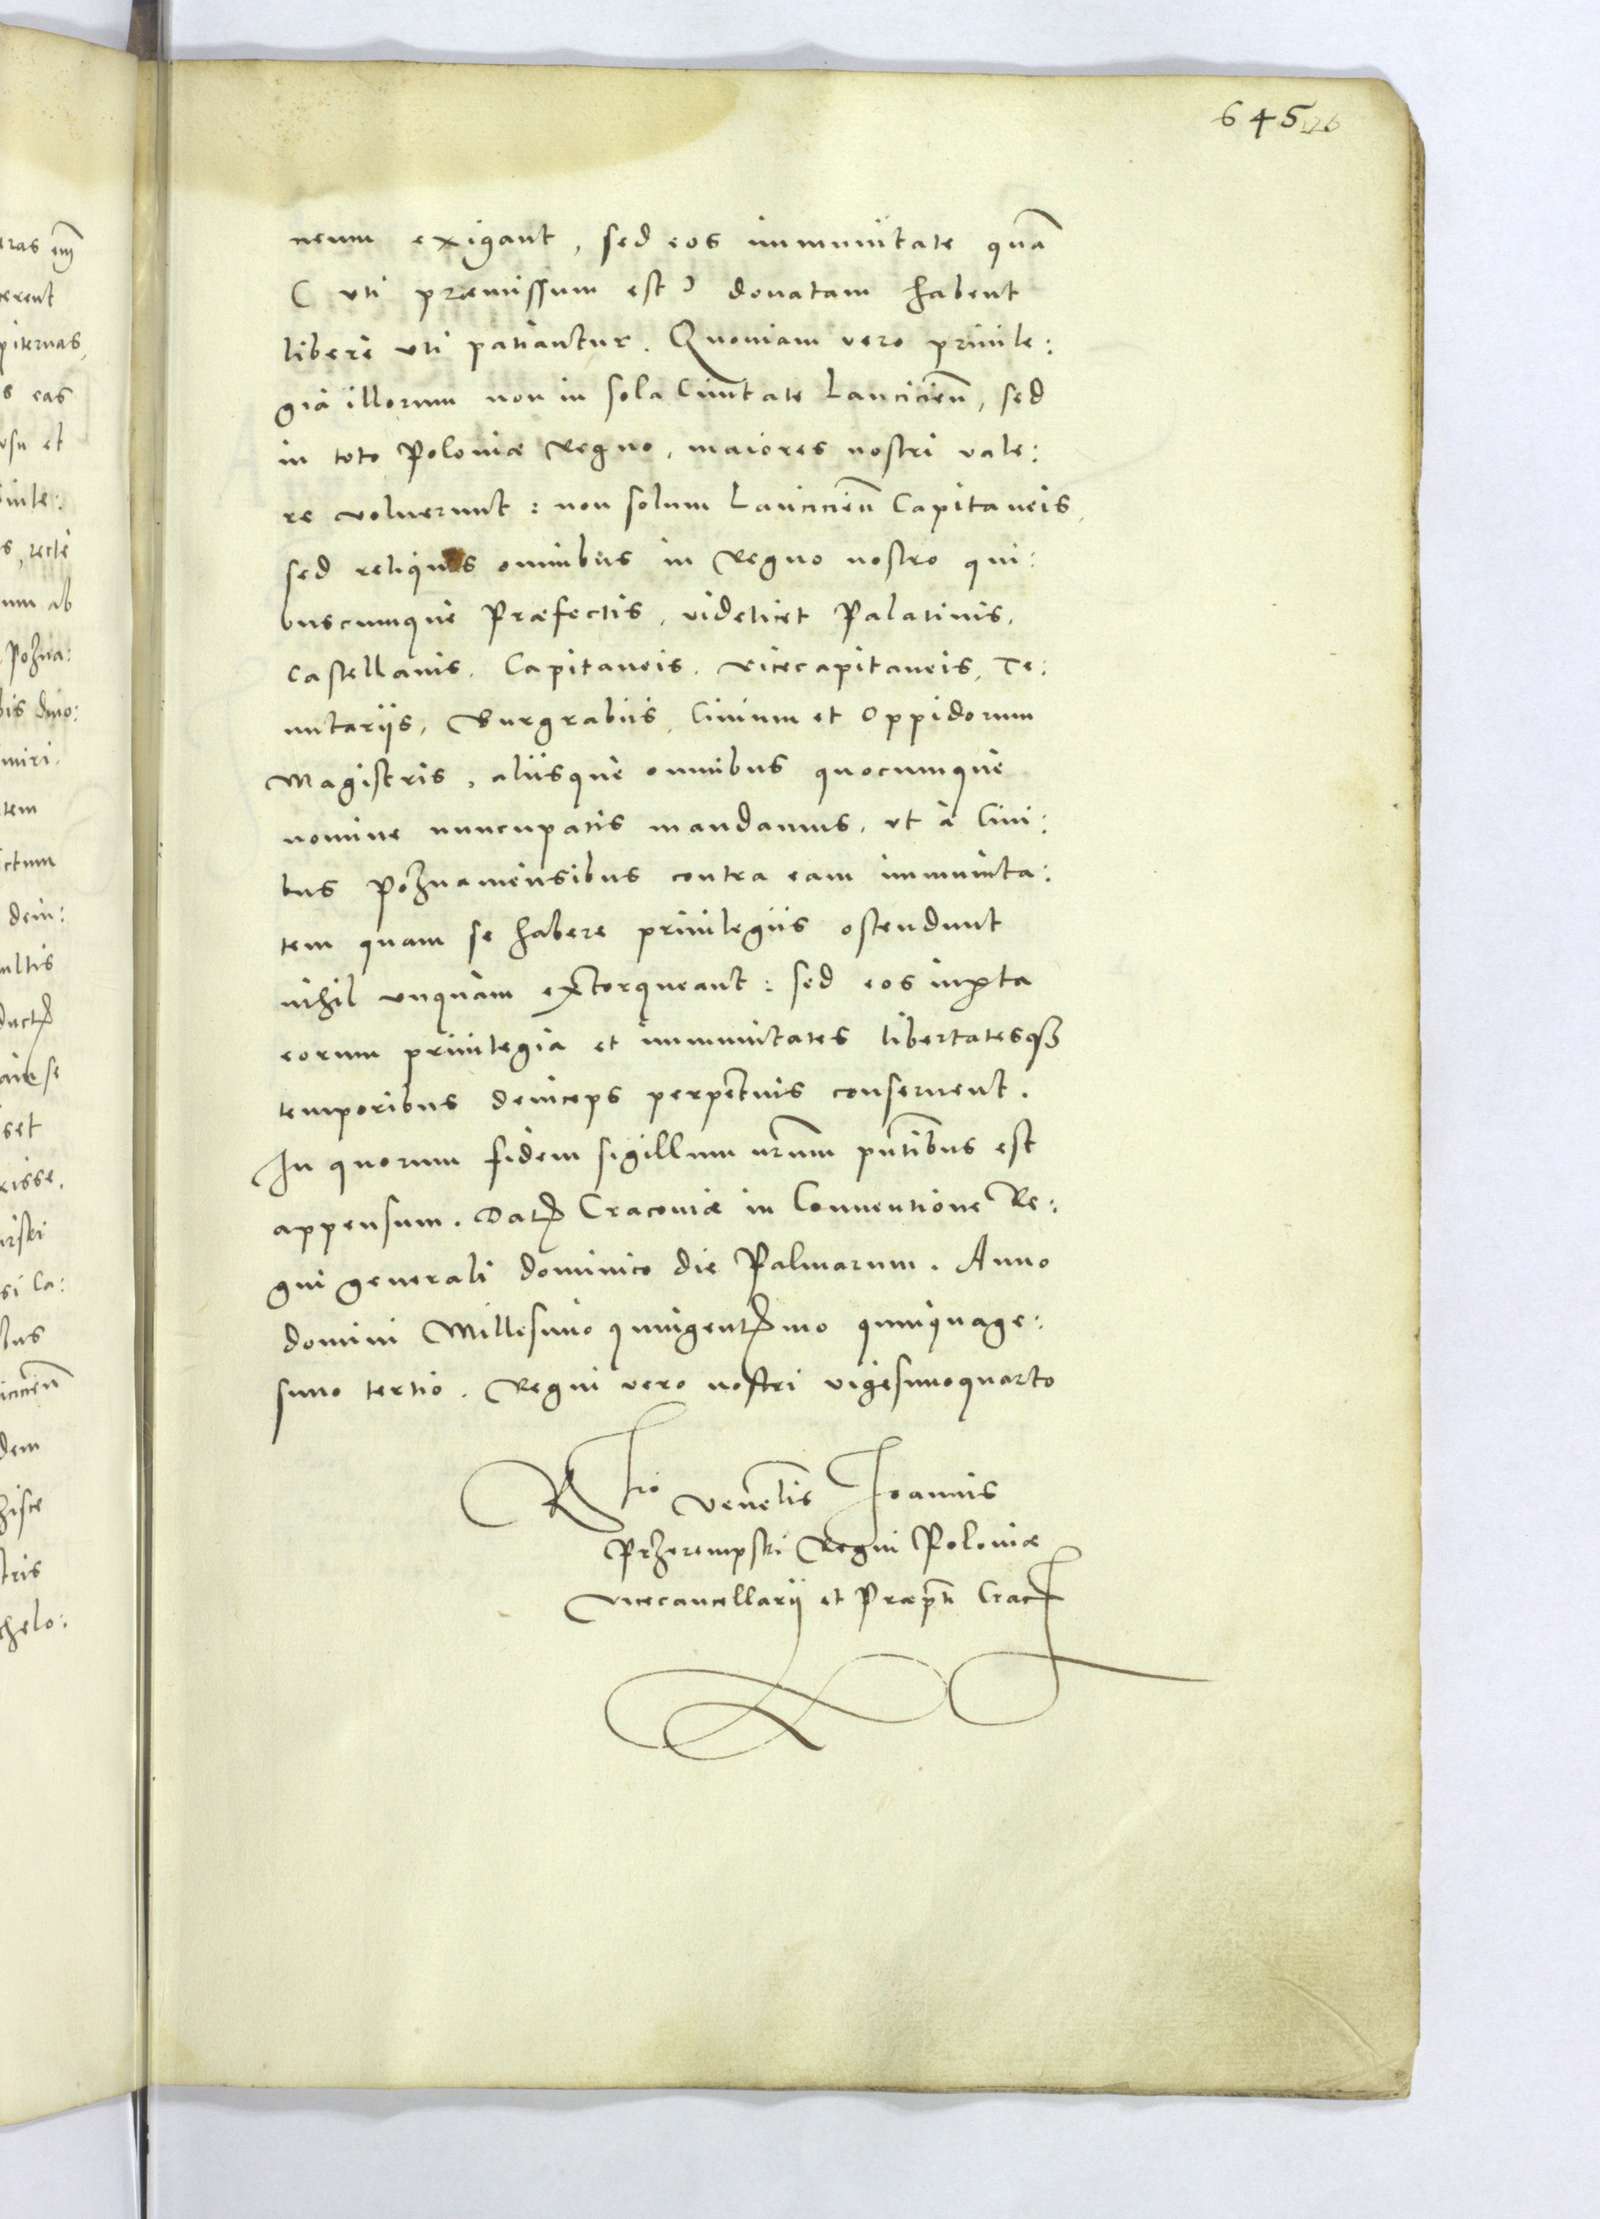 645
neum exigant, sed eos immunitate quā
( uti præmissum est ) donatam habent
libere uti patiantur. Quoniam vero privile:
gia illorum non in sola Civitate Lancicień, sed
in toto Poloniæ Regno, maiores nostri vale:
re voluerunt: non solum Lancicień Capitaneis,
sed reliquis omnibus in Regno nostro qui:
buscumque Præfectis, videlicet Palatinis,
Castellanis, Capitaneis, vicecapitaneis, Te:
nutariis, Burgrabiis, Civium et Oppidorum
Magistris, aliisque omnibus quocumque
nomine nuncupatis mandamus, ut à Civi:
bus Poznaniensibus contra eam immunita:
tem quam se habere privilegiis ostendunt
nihil unquam extorqueant: sed eos iuxta
eorum privilegia et immunitates libertatesqȝ
temporibus deinceps perpetuis conservent.
In quorum fidem sigillum nrum pñtibus est
appensum. Dat Cracoviæ in Conventione Re:
gni generali dominico die Palmarum. Anno
domini Millesimo quingentmo quinquage:
simo tertio. Regni vero nostri vigesimoquarto
Rtio Venelis Joannis
Przerempski Regni Poloniæ
Vicecancellarij et Præpti Crac
eras
erent
piternas,
s eas
usu et
s, recte
um ab
Pozna:
miri.
tem
ctum
dein:
ultis
se
set
isse.
si Ca:
dem
tris
chelo: